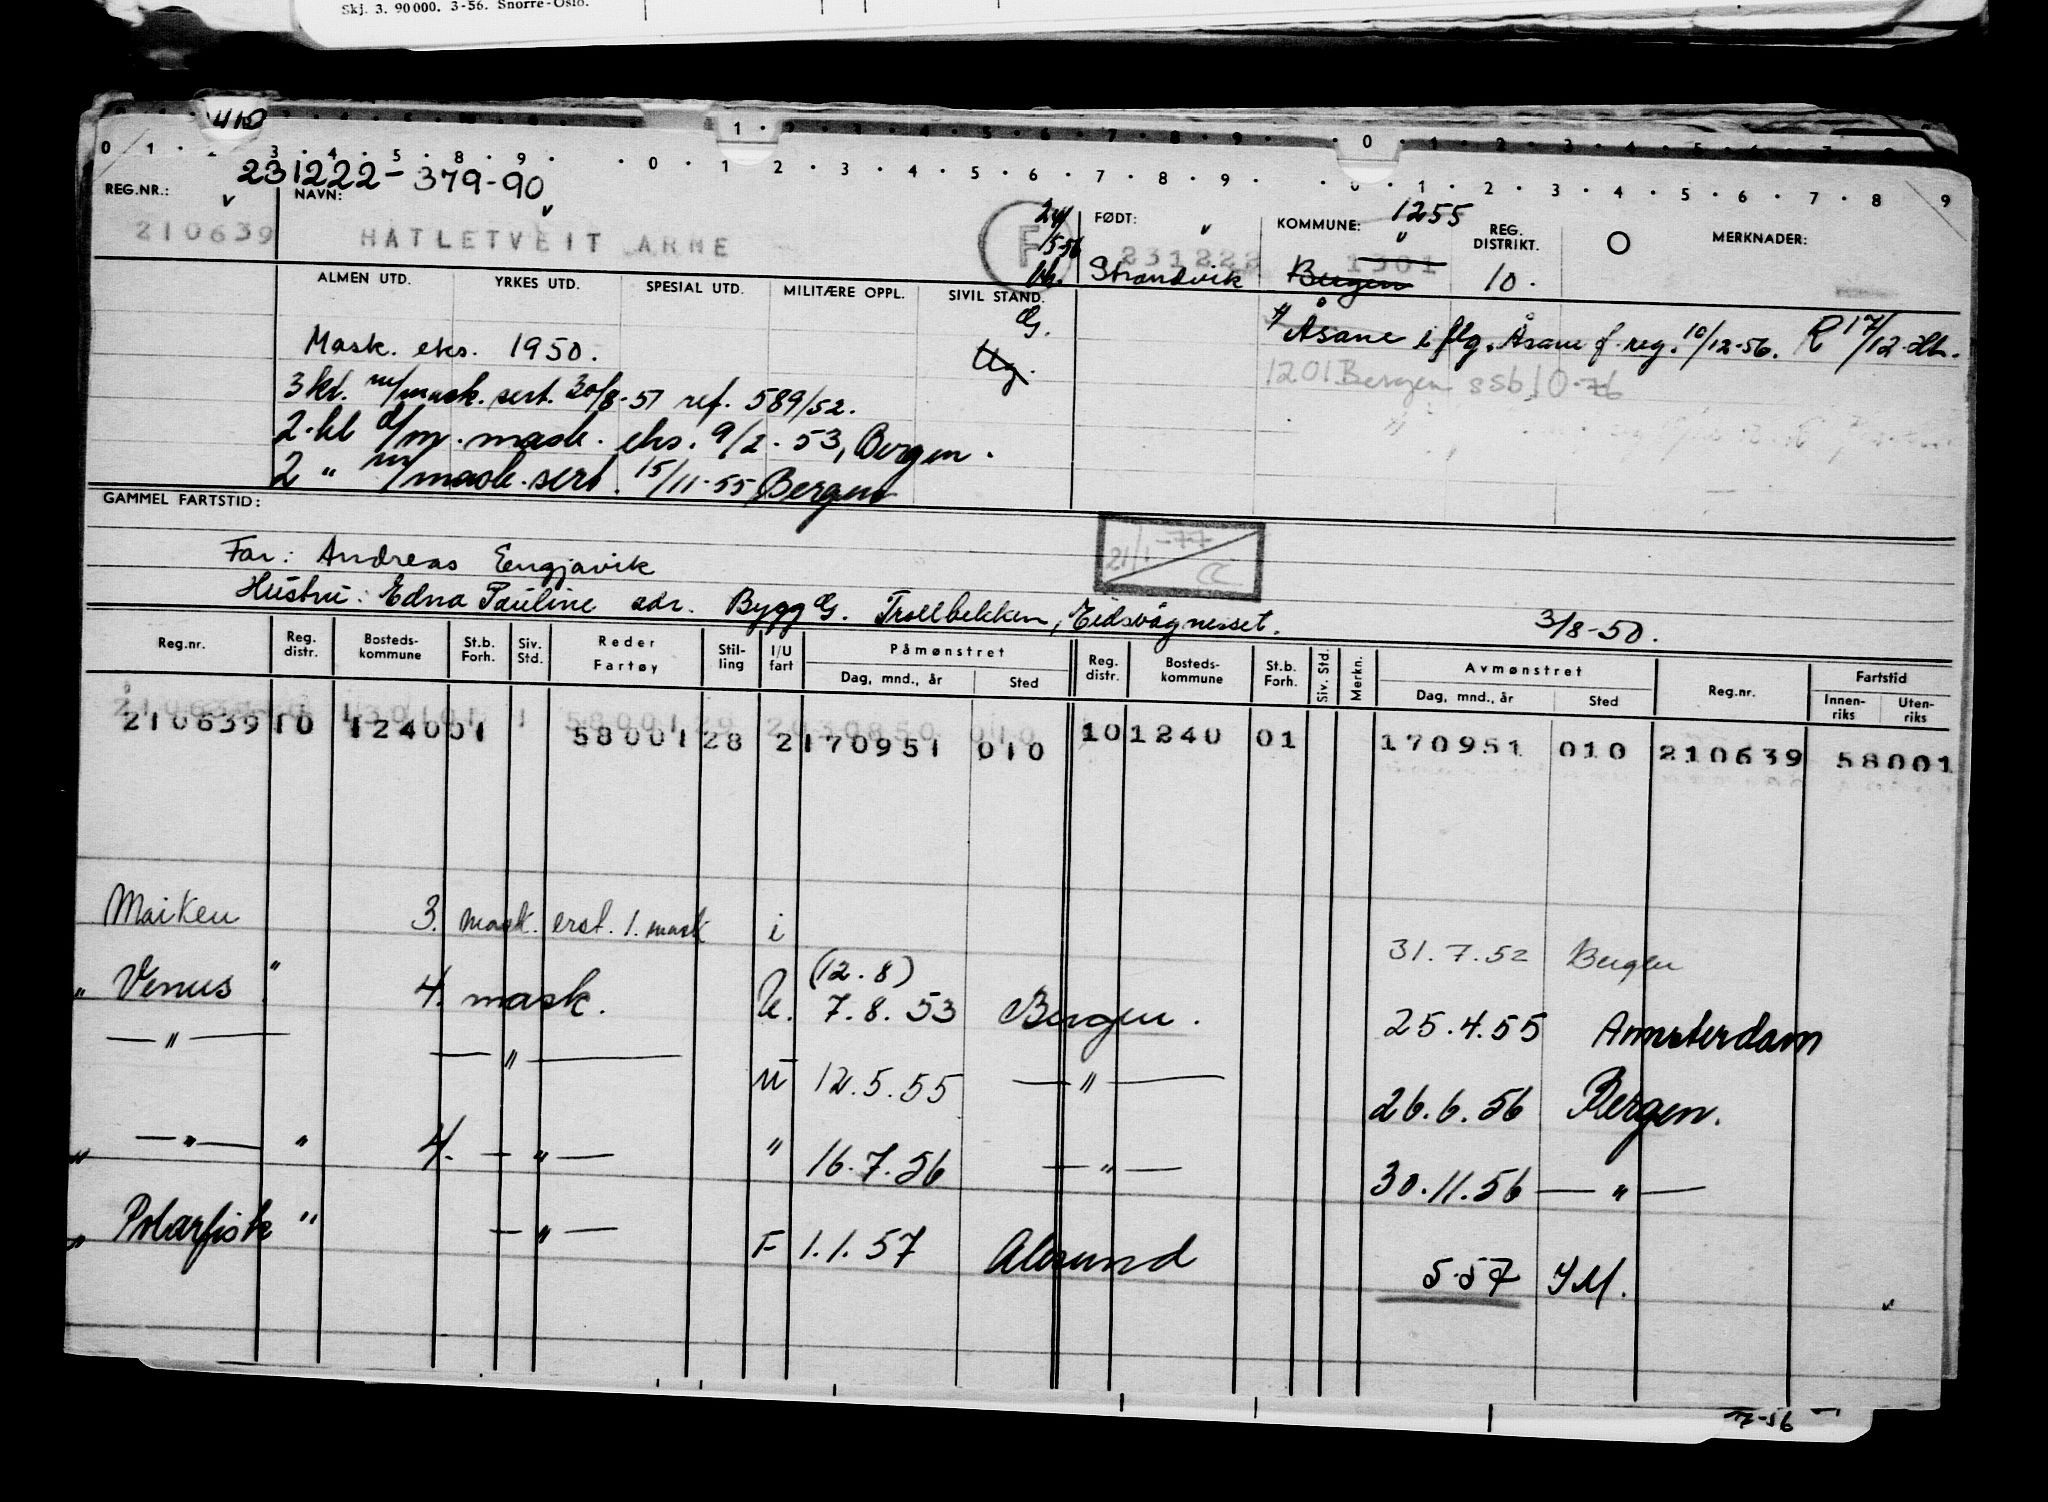 Skj. 3. 90000. 3-56. Snorre-Oslo.
410
0 1 2 3 4 5 8 9 0 1 2 3 4 5 6 7 8 9 0 1 2 3 4 5 6 7 8 9
231222-379-90
REG.NR.: NAVN: FØDT: KOMMUNE: 1255 REG. DISTRIKT. O MERKNADER:
210639 HATLETVEIT ARNE F 231222 1301
Strandvik Bergen 10.
ALMEN UTD. YRKES UTD. SPESIAL UTD. MILITÆRE OPPL. SIVIL STAND.
G.
Ug.
Åsane i flg. Åsane f.reg. 10/12-56. R 17/12
1201 Bergen ssb 10-76
Mask. eks. 1950.
3 kl. m/mask. sert. 30/8-51 ref. 589/52.
2.kl d/m. mask. eks. 9/2-53, Bergen.
2 " m/mask. sert. 15/11-55 Bergen
GAMMEL FARTSTID:
21/1-77
Far: Andreas Engjavik
Hustru: Edna Pauline adr. Bygg G. Trollbekken, Eidsvågnesset. 3/8-50.
Reg.nr. Reg. distr. Bosteds- kommune St.b. Forh. Siv. Std. Reder Fartøy Stil- ling I/U fart Påmønstret Reg. distr. Bosteds- kommune St.b. Forh. Siv. Std. Merkn. Avmønstret Reg.nr. Fartstid
Dag, mnd., år Sted Dag, mnd., år Sted Innen- riks Uten- riks
210639 10 1240 01 58001 28 2 170951 010 10 1240 01 170951 010 210639 58001
Maiken 3. mask. erst. 1. mask i 31.7.52 Bergen
" Venus " 4. mask. U. (12.8) 7.8.53 Bergen. 25.4.55 Amsterdam
— " — — " — U 12.5.55 — " — 26.6.56 Bergen.
" — " — " 4. — " — " 16.7.56 — " — 30.11.56 — " —
" Polarfisk " — " — F 1.1.57 Alesund 5.57 I M.
7-56